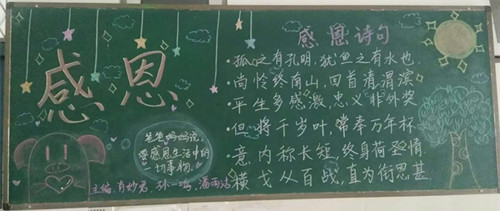 感恩
爸爸妈妈说,
要感恩生活中的
一切事物。
主编:肖妙君 孙 潘雨
感恩诗句
·孤之有孔明,犹鱼之有水也.
·尚怜终南山,回首清渭滨
·平生多感激,忠义非外奖
·但将千岁叶,常奉万年杯
·竟内称长短,终身荷圣情
·横戈从百战,直为衔恩甚